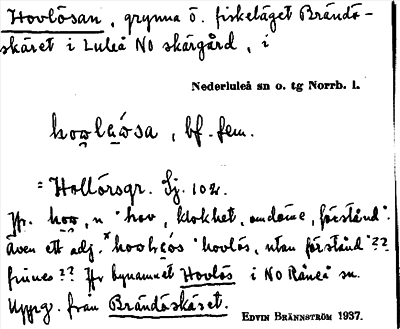 Hovlösan, grynna ö. fiskeläget Brändö-
skäret i Luleå NO skärgård, i
Nederluleå sn o. tg Norrb. l.
bf. fem.
= Hollörsgr. Sj. 102.
Jfr. hov, n "hov, klokhet, omdöme, förstånd".
Även ett adj. "hovlös, utan förstånd"??
finnes?? Jfr bynamnet Hovlös i NO Råneå sn.
Uppg. från Brändöskäret.
EDVIN BRÄNNSTRÖM 1937.